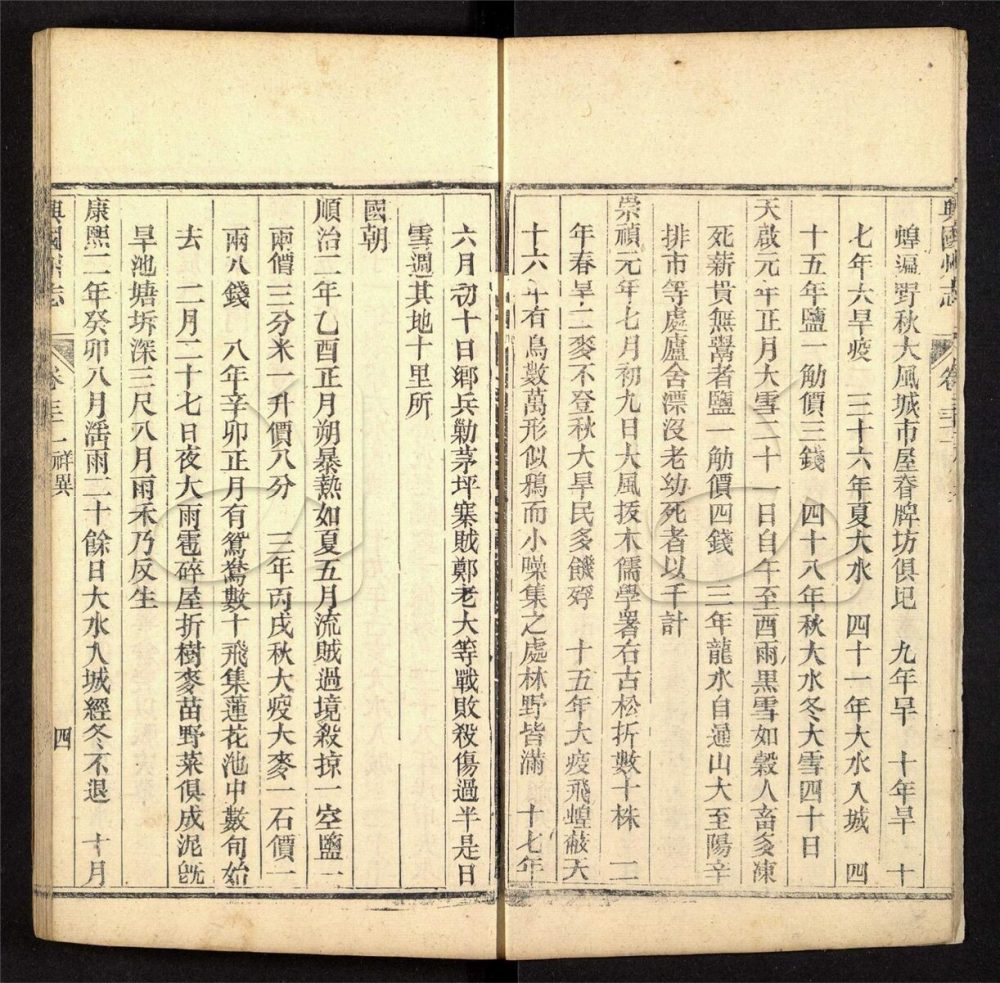 興國州志
蝗遍野秋大風城市屋脊牌坊俱圮　九年旱　十年旱　十
七年大旱疫　三十六年夏大水　四十一年大水入城　四
十五年鹽一觔價三錢　四十八年秋大水冬大雪四十日
天啟元年正月大雪二十一日自午至酉雨黑雪如榖人畜多凍
死薪貴無鬻者鹽一觔價四錢　三年龍水自通山大至陽辛
排市等處廬舍漂沒老幼死者以千計
崇禎元年七月初九日大風拔木儒學署右古松折數十株　二
年春旱二麥不登秋大旱民多饑殍　十五年大疫飛蝗蔽天
十六年有鳥數萬形似鴉而小噪集之處林野皆滿　十七年
六月初十日鄉兵勦茅坪寨賊鄭老大等戰敗殺傷過半是日
雪週其地十里所
國朝
順治二年乙酉正月朔暴熱如夏五月流賊過境殺掠一空鹽一
兩價三分米一升價八分　三年丙戌秋大疫大麥一石價一
兩八錢　八年辛卯正月有鴛鴦數十飛集蓮花池中數旬始
去　二月二十七日夜大雨雹碎屋折樹麥苗野菜俱成泥旣
旱池塘坼深三尺八月雨禾乃反生
康熙二年癸卯八月淫雨二十餘日大水入城經冬不退　十月
興國州志　卷三十一祥異　四